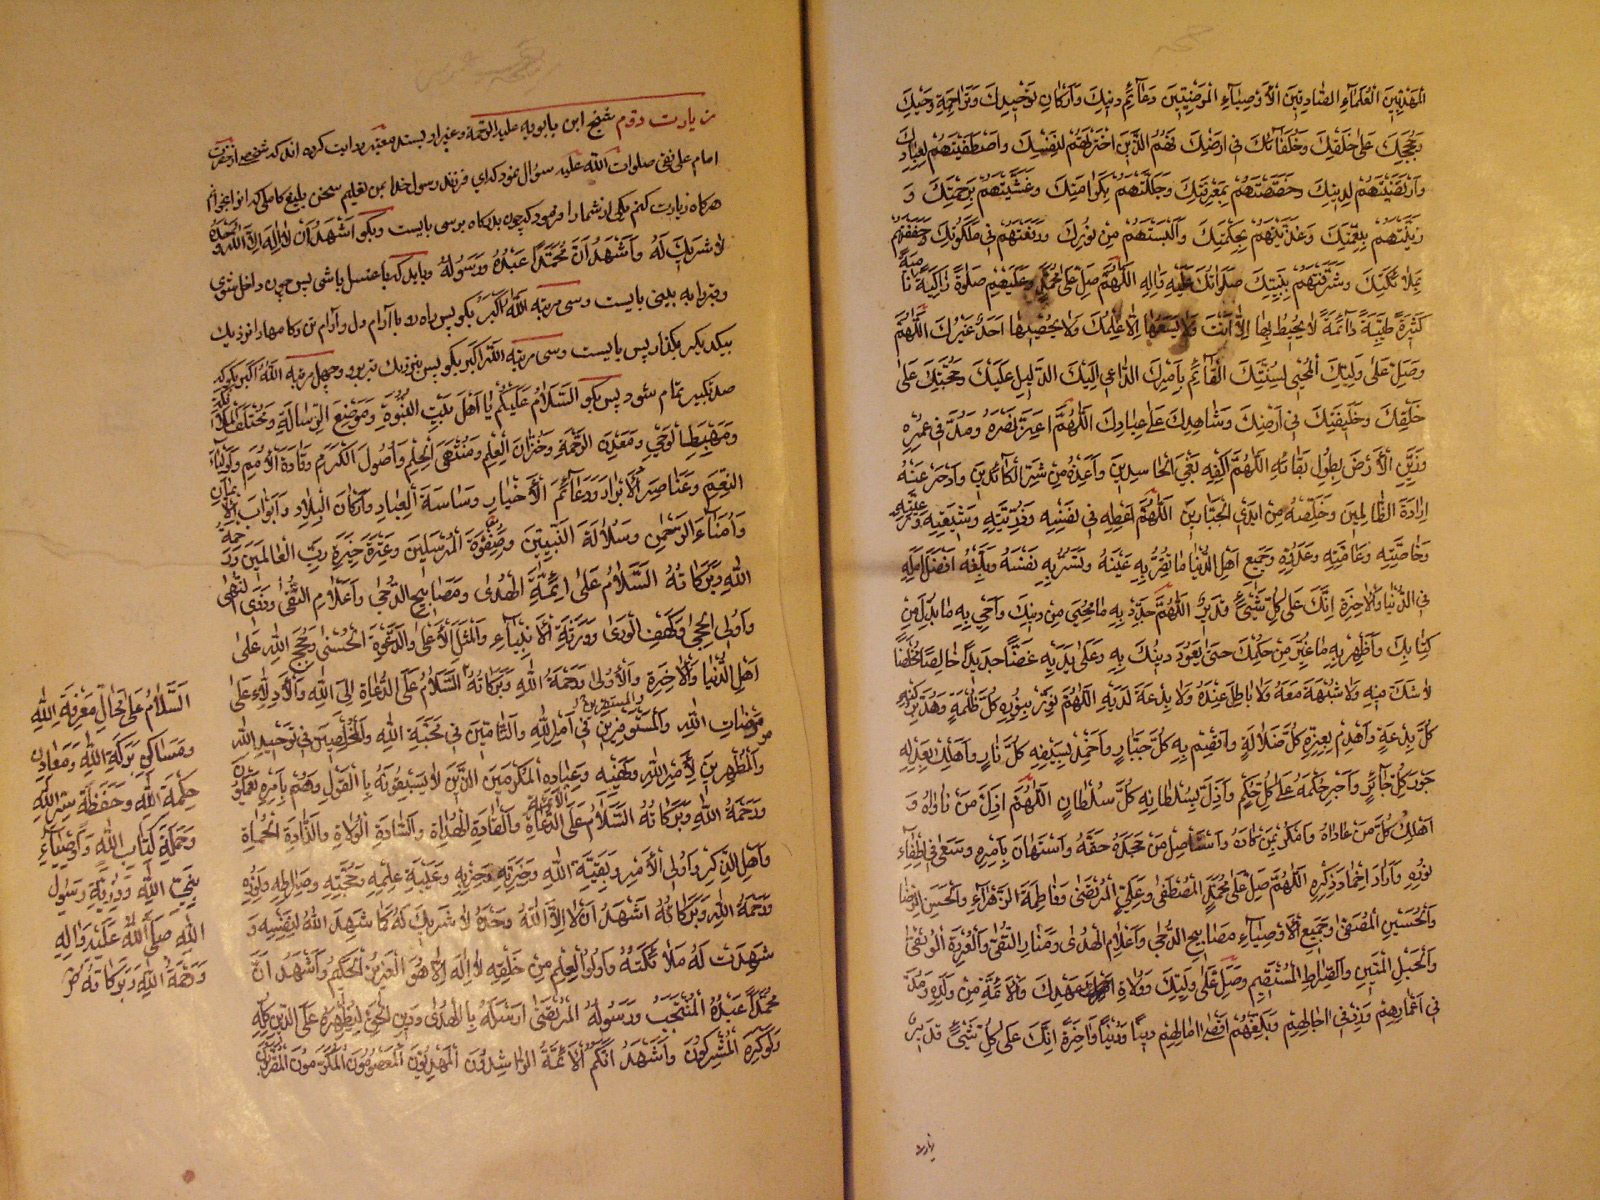 المهديين العلماء الصادقين الأوصياء المرضيين دعائم دينك وأركان توحيدك وتراجمة وحيك
وحججك على خلقك وخلفائك في أرضك فهم الذين اخترتهم لنفسك واصطفيتهم لعبادك
وارتضيتهم لدينك وخصصتهم بمعرفتك وجللتهم بكرامتك وغشيتهم برحمتك و
ربيتهم بنعمتك وغذيتهم بحكمتك وألبستهم من نورك ورفعتهم في ملكوتك وحففتهم
بملائكتك وشرفتهم بنبيك صلواتك عليه وآله اللهم صل على محمد وعليهم صلوة زاكية نامية
كثيرة طيبة دائمة لا يحيط بها إلا أنت ولا يسعها إلا علمك ولا يحصيها أحد غيرك اللهم
وصل على وليك المحيي لسنتك القائم بأمرك الداعي إليك الدليل عليك وحجتك على
خلقك وخليفتك في أرضك وشاهدك على عبادك اللهم اعزز نصره ومد في عمره
وزين الأرض بطول بقائه اللهم اكفه بغي الحاسدين وأعذه من شر الكائدين وادحر عنه
إرادة الظالمين وخلصه من أيدي الجبارين اللهم أعطه في نفسه وذريته وشيعته ورعيته
وخاصته وعامته وعدوه وجميع أهل الدنيا ما تقر به عينه وتسر به نفسه وبلغه أفضل أمله
في الدنيا والآخرة إنك على كل شيئ قدير اللهم جدد به ما محي من دينك وأحي به ما بدل من
كتابك وأظهر به ما غير من حكمك حتى يعود دينك به وعلى يديه غضا جديدا خالصا مخلصا
لا شك فيه ولا شبهة معه ولا باطل عنده ولا بدعة لديه اللهم نور بنوره كل ظلمة وهد بركنه
كل بدعة واهدم بعزته كل ضلالة واقصم به كل جبار واخمد بسيفه كل نار وأهلك بعدله
جور كل جائر وأجر حكمه على كل حكم وأذل بسلطانه كل سلطان اللهم أذل من ناواه و
أهلك كل من عاداه وامكر بمن كاده واستأصل من جحده حقه واستهان بأمره وسعى في إطفاء
نوره وأراد إخماد ذكره اللهم صل على محمد المصطفى وعلي المرتضى وفاطمة الزهراء والحسن الرضا
والحسين المصفى وجميع الأوصياء مصابيح الدجى وأعلام الهدى ومنار التقى والعروة الوثقى
والحبل المتين والصراط المستقيم وصل على وليك وولاة عهدك والأئمة من ولده ومد
في أعمارهم وزد في آجالهم وبلغهم أقصى آمالهم دينا ودنيا وآخرة إنك على كل شيئ قدير
زيارت
زيارت دوم شيخ ابن بابويه عليه الرحمة وغير او بسند معتبر روايت كرده اند كه شخصى از حضرت
امام على نقى صلوات الله عليه سؤال نمود كه اى فرزند رسول خدا بمن تعليم سخن بليغ كاملى كه انرا بخوانم
هركاه زيارت كنم يكى از شما را فرمود كه چون بدركاه برسى بايست وبكو أشهد أن لا إله إلا الله وحده
لا شريك له وأشهد أن محمدا عبده ورسوله وبايد كه با غسل باشى پس چون داخل شوى
وقبر را به بينى بايست وسى مرتبه الله أكبر بكو پس راه رو با آرام دل وآرام تن وكامها را نزديك
بيكديكر بكذار پس بايست وسى مرتبه الله أكبر بكو پس نزديك قبر برو وچهل مرتبه الله أكبر بكو كه
صد تكبير تمام شود پس بكو السلام عليكم يا أهل بيت النبوة وموضع الرسالة ومختلف الملائكة
ومهبط الوحي ومعدن الرحمة وخزان العلم ومنتهى الحلم وأصول الكرم وقادة الأمم وأولياء
النعم وعناصر الأبرار ودعائم الأخيار وساسة العباد وأركان البلاد وأبواب الإيمان
وأمناء الرحمن وسلالة النبيين وصفوة المرسلين وعترة خيرة رب العالمين ورحمة
الله وبركاته السلام على أئمة الهدى ومصابيح الدجى وأعلام التقى وذوي النهى
وأولي الحجى وكهف الورى وورثة الأنبياء والمثل الأعلى والدعوة الحسنى وحجج الله على
أهل الدنيا والآخرة والأولى ورحمة الله وبركاته السلام على الدعاة إلى الله والأدلاء على
مرضات الله والمستوفزين في أمر الله والتامين في محبة الله والمخلصين في توحيد الله
والمظهرين لأمر الله ونهيه وعباده المكرمين الذين لا يسبقونه بالقول وهم بأمره يعملون
ورحمة الله وبركاته السلام على الأئمة الدعاة والقادة الهداة والسادة الولاة والذادة الحماة
وأهل الذكر وأولي الأمر وبقية الله وخيرته وحزبه وعيبة علمه وحجته وصراطه ونوره
ورحمة الله وبركاته أشهد أن لا إله إلا الله وحده لا شريك له كما شهد الله لنفسه و
شهدت له ملائكته وأولو العلم من خلقه لا إله إلا هو العزيز الحكيم وأشهد أن
محمدا عبده المنتجب ورسوله المرتضى أرسله بالهدى ودين الحق ليظهره على الدين كله
ولو كره المشركون وأشهد أنكم الأئمة الراشدون المهديون المعصومون المكرمون المقربون
السلام على محال معرفة الله
ومساكن بركة الله ومعادن
حكمة الله وحفظة سر الله
وحملة كتاب الله وأوصياء
نبي الله وذرية رسول
الله صلى الله عليه وآله
ورحمة الله وبركاته